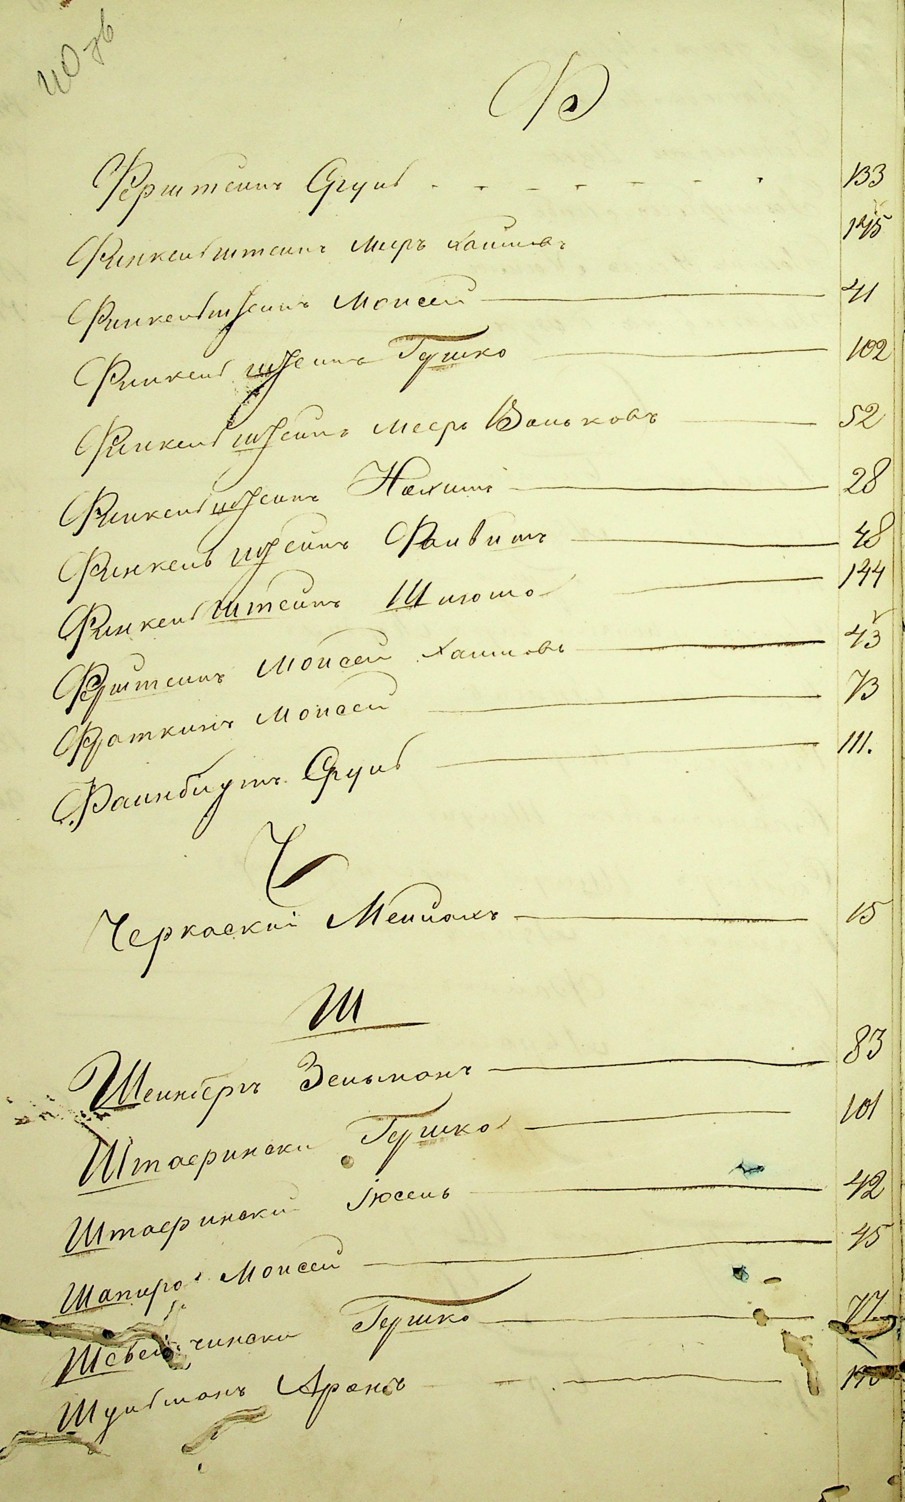 Ф
Ферштеинъ Сруль 133
Финкельштеинъ Меръ Хаимовъ 145
Финкельштеинъ Моисей 41
Финкельштеинъ Гершко 102
Финкельштеинъ Мееръ Вольковъ 52
Финкельштеинъ Нахимъ 28
Финкельштейнъ Файвишъ 48
Финкельштейнъ Шліома 144
Ферштеинъ Моисей Хаимовъ 43
Фраткинъ Моисей 73
Фаинбитъ Сруль 111.
Ч
Черкаскій Мейлахъ 15
Ш
Шеинберъ Зельманъ 83
Штаерински Гершко 101
Штаерински Іосель 42
Шапиро Моисей 45
Гершко 77
Шульманъ Аронъ